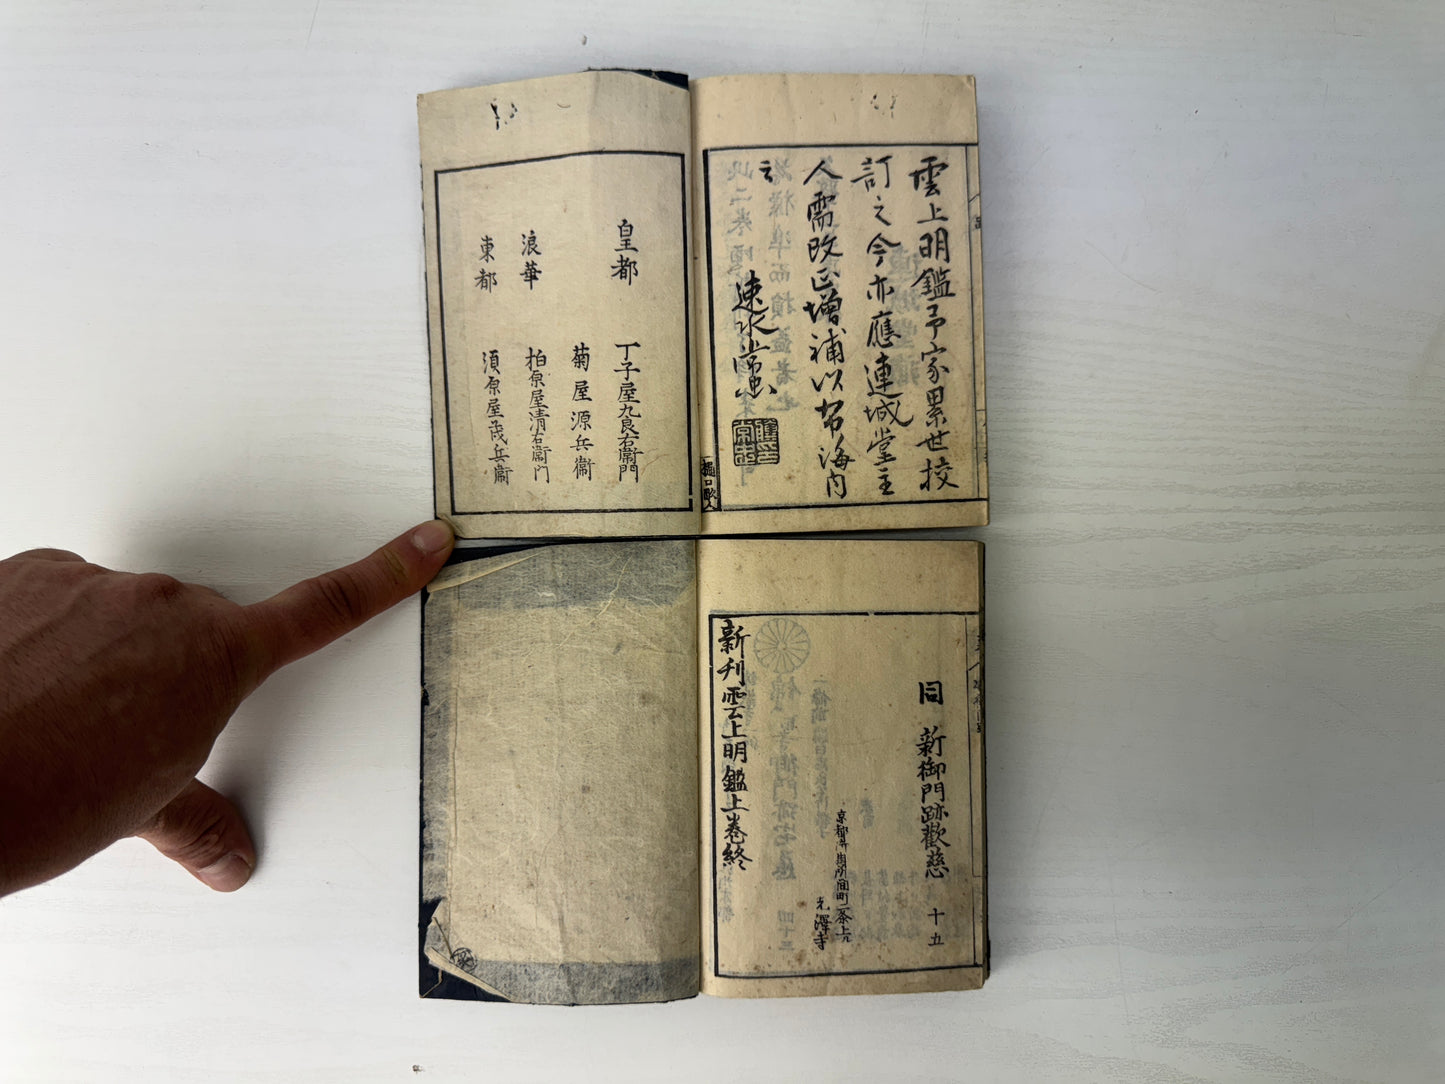 雲上明鑑予家累世挍
訂之今亦應連城堂主
人需改正增補以布海内
云
速水常忠
樋口畝人
皇都
丁子屋九良右衛門
菊屋源兵衛
浪華
柏原屋清右衛門
東都
須原屋茂兵衛
同 新御門跡歡慈 十五
京都 間町二条上ル
光澤寺
新刋雲上明鑑上巻終